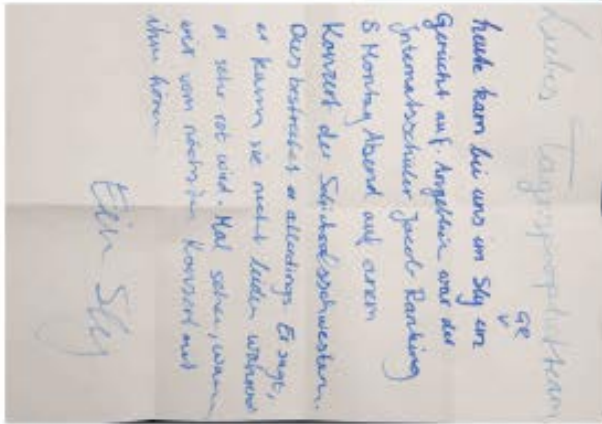 Liebes Tagesprophetteam,
heute kam bei uns im Sly GR ein
Gerücht auf. Angeblich war der
Internatsschüler Jacob Ranking
8 Montag Abend auf einem
Konzert der Schicksalsschwestern.
Dies bestreitet er allerdings. Er sagt,
er kann sie nicht leiden während
er sehr rot wird. Mal sehen, wann
wir vom nächsten Konzert mit
ihm hören.
Ein Sly